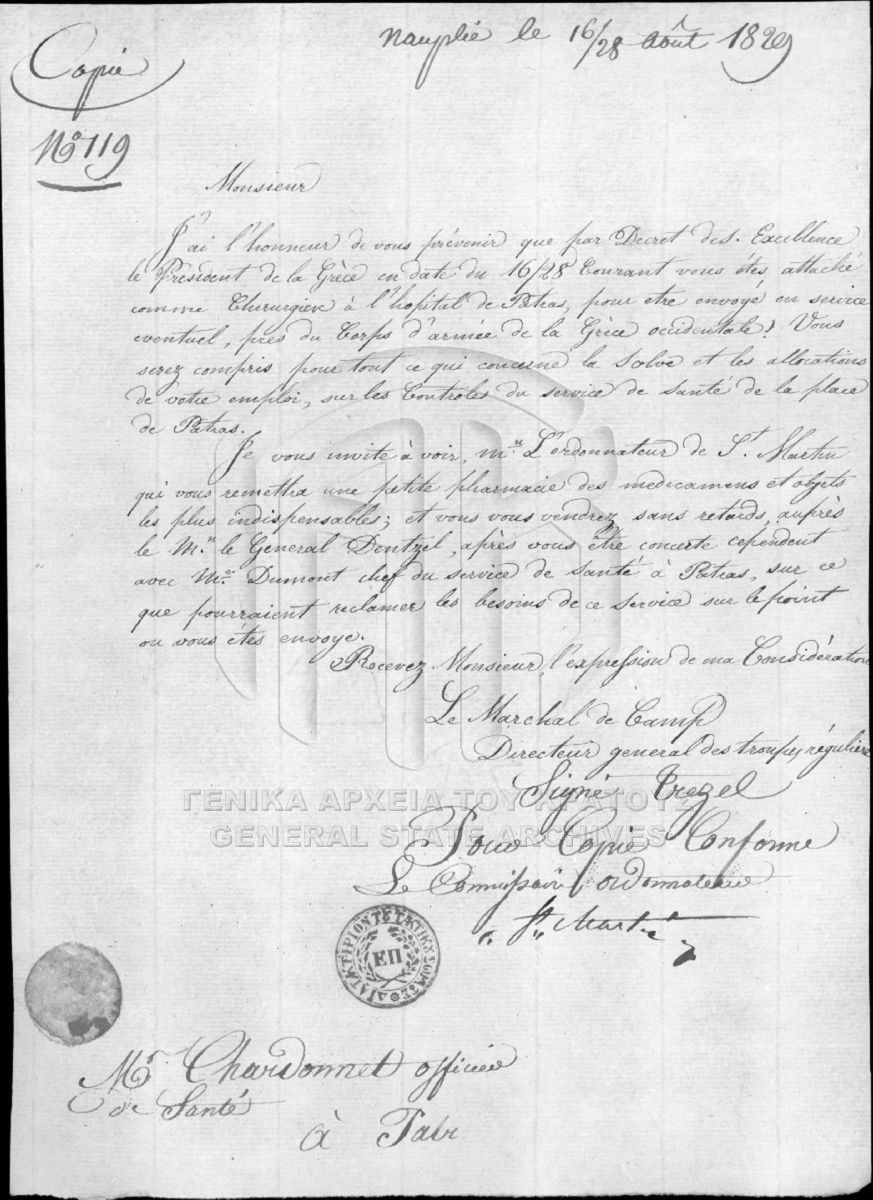 Nauplie le 16/28 Août 1829
Copie
Nº 119
Monsieur
J'ai l'honneur de vous prévenir que par Decret de S. Excellence
le Président de la Grèce en date du 16/28 Courant vous étes attaché
comme Chirurgien à l'hopital de Patras, pour etre envoyé en service
eventuel, près du Corps d'armée de la Grèce occidentale. Vous
serez compris pour tout ce qui concerne la Solve et les allocations
de votre emploi, sur les Controles du service de santé de la place
de Patras.
Je vous invite à voir, Mr. L'ordonnateur de St. Martin
qui vous remettra une petite pharmacie des medicamens et objets
les plus indispensables; et vous vous vendrez sans retards, auprès
le Mr. le General Dentzel, après vous être concerte cependent
avec Mr. Dumont chef du service de santé à Patras, sur ce
que pourraient reclamer les besoins de ce service sur le point
ou vous étes envoye.
Recevez Monsieur l'expression de ma Considération
Le Marchal de Camp
Directeur general des troupes régulière
Signé Trezel
Pour Copie Conforme
Le Commissaire ordonnateur
St. Martin
ΕΠ
Mr Chardonnet officier
de Santé
à Patr
ΓΕΝΙΚΑ ΑΡΧΕΙΑ ΤΟΥ ΚΡΑΤΟΥΣ
GENERAL STATE ARCHIVES